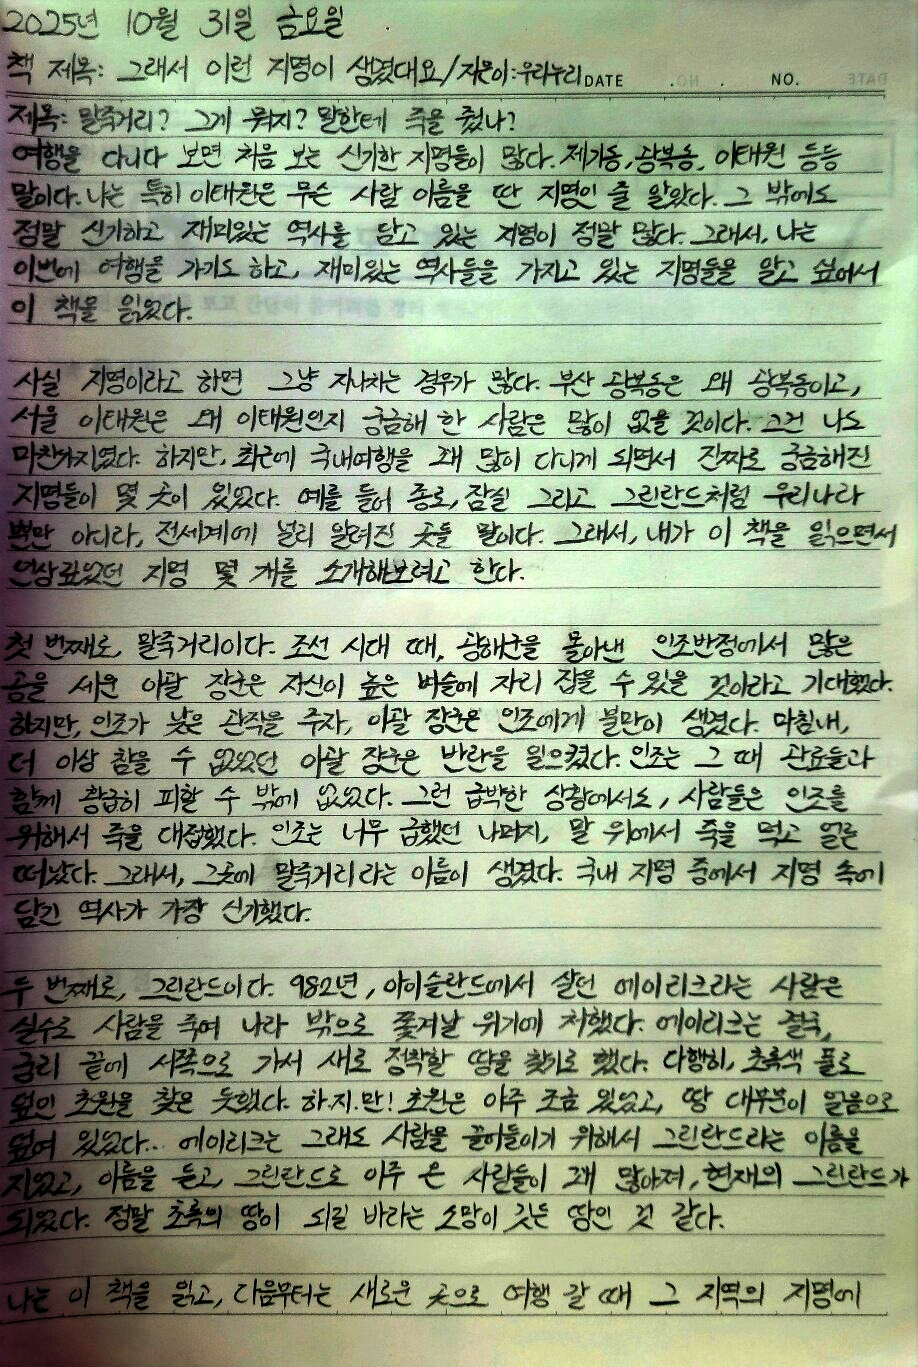 2025년 10월 31일 금요일
책 제목: 그래서 이런 지명이 생겼대요/지은이:우리누리 DATE . . NO.
제목: 말죽거리? 그게 뭐지? 말한테 죽을 줬나?
여행을 다니다 보면 처음 보는 신기한 지명들이 많다. 제기동, 광복동, 이태원 등등
말이다. 나는 특히 이태원은 무슨 사람 이름을 딴 지명인 줄 알았다. 그 밖에도
정말 신기하고 재미있는 역사를 담고 있는 지명이 정말 많다. 그래서, 나는
이번에 여행을 가기도 하고, 재미있는 역사들을 가지고 있는 지명들을 알고 싶어서
이 책을 읽었다.
사실 지명이라고 하면 그냥 지나치는 경우가 많다. 부산 광복동은 왜 광복동이고,
서울 이태원은 왜 이태원인지 궁금해 한 사람은 많이 없을 것이다. 그건 나도
마찬가지였다. 하지만, 최근에 국내여행을 꽤 많이 다니게 되면서 진짜로 궁금해진
지명들이 몇 곳이 있었다. 예를 들어 종로, 잠실 그리고 그린란드처럼 우리나라
뿐만 아니라, 전세계에 널리 알려진 곳들 말이다. 그래서, 내가 이 책을 읽으면서
인상깊었던 지명 몇 개를 소개해보려고 한다.
첫 번째로, 말죽거리이다. 조선 시대 때, 광해군을 몰아낸 인조반정에서 많은
공을 세운 이괄 장군은 자신이 높은 벼슬에 자리 잡을 수 있을 것이라고 기대했다.
하지만, 인조가 낮은 관직을 주자, 이괄 장군은 인조에게 불만이 생겼다. 마침내,
더 이상 참을 수 없었던 이괄 장군은 반란을 일으켰다. 인조는 그 때 관료들과
함께 황급히 피할 수 밖에 없었다. 그런 급박한 상황에서도, 사람들은 인조를
위해서 죽을 대접했다. 인조는 너무 급했던 나머지, 말 위에서 죽을 먹고 얼른
떠났다. 그래서, 그곳에 말죽거리라는 이름이 생겼다. 국내 지명 중에서 지명 속에
담긴 역사가 가장 신기했다.
두 번째로, 그린란드이다. 982년, 아이슬란드에서 살던 에이리크라는 사람은
실수로 사람을 죽여 나라 밖으로 쫓겨날 위기에 처했다. 에이리크는 결국,
궁리 끝에 서쪽으로 가서 새로 정착할 땅을 찾기로 했다. 다행히, 초록색 풀로
덮인 초원을 찾은 듯했다. 하.지.만! 초원은 아주 조금 있었고, 땅 대부분이 얼음으로
덮여 있었다... 에이리크는 그래도 사람을 끌어들이기 위해서 그린란드라는 이름을
지었고, 이름을 듣고, 그린란드로 이주 온 사람들이 꽤 많아져, 현재의 그린란드가
되었다. 정말 초록의 땅이 되길 바라는 소망이 깃든 땅인 것 같다.
나는 이 책을 읽고, 다음부터는 새로운 곳으로 여행 갈 때 그 지역의 지명에